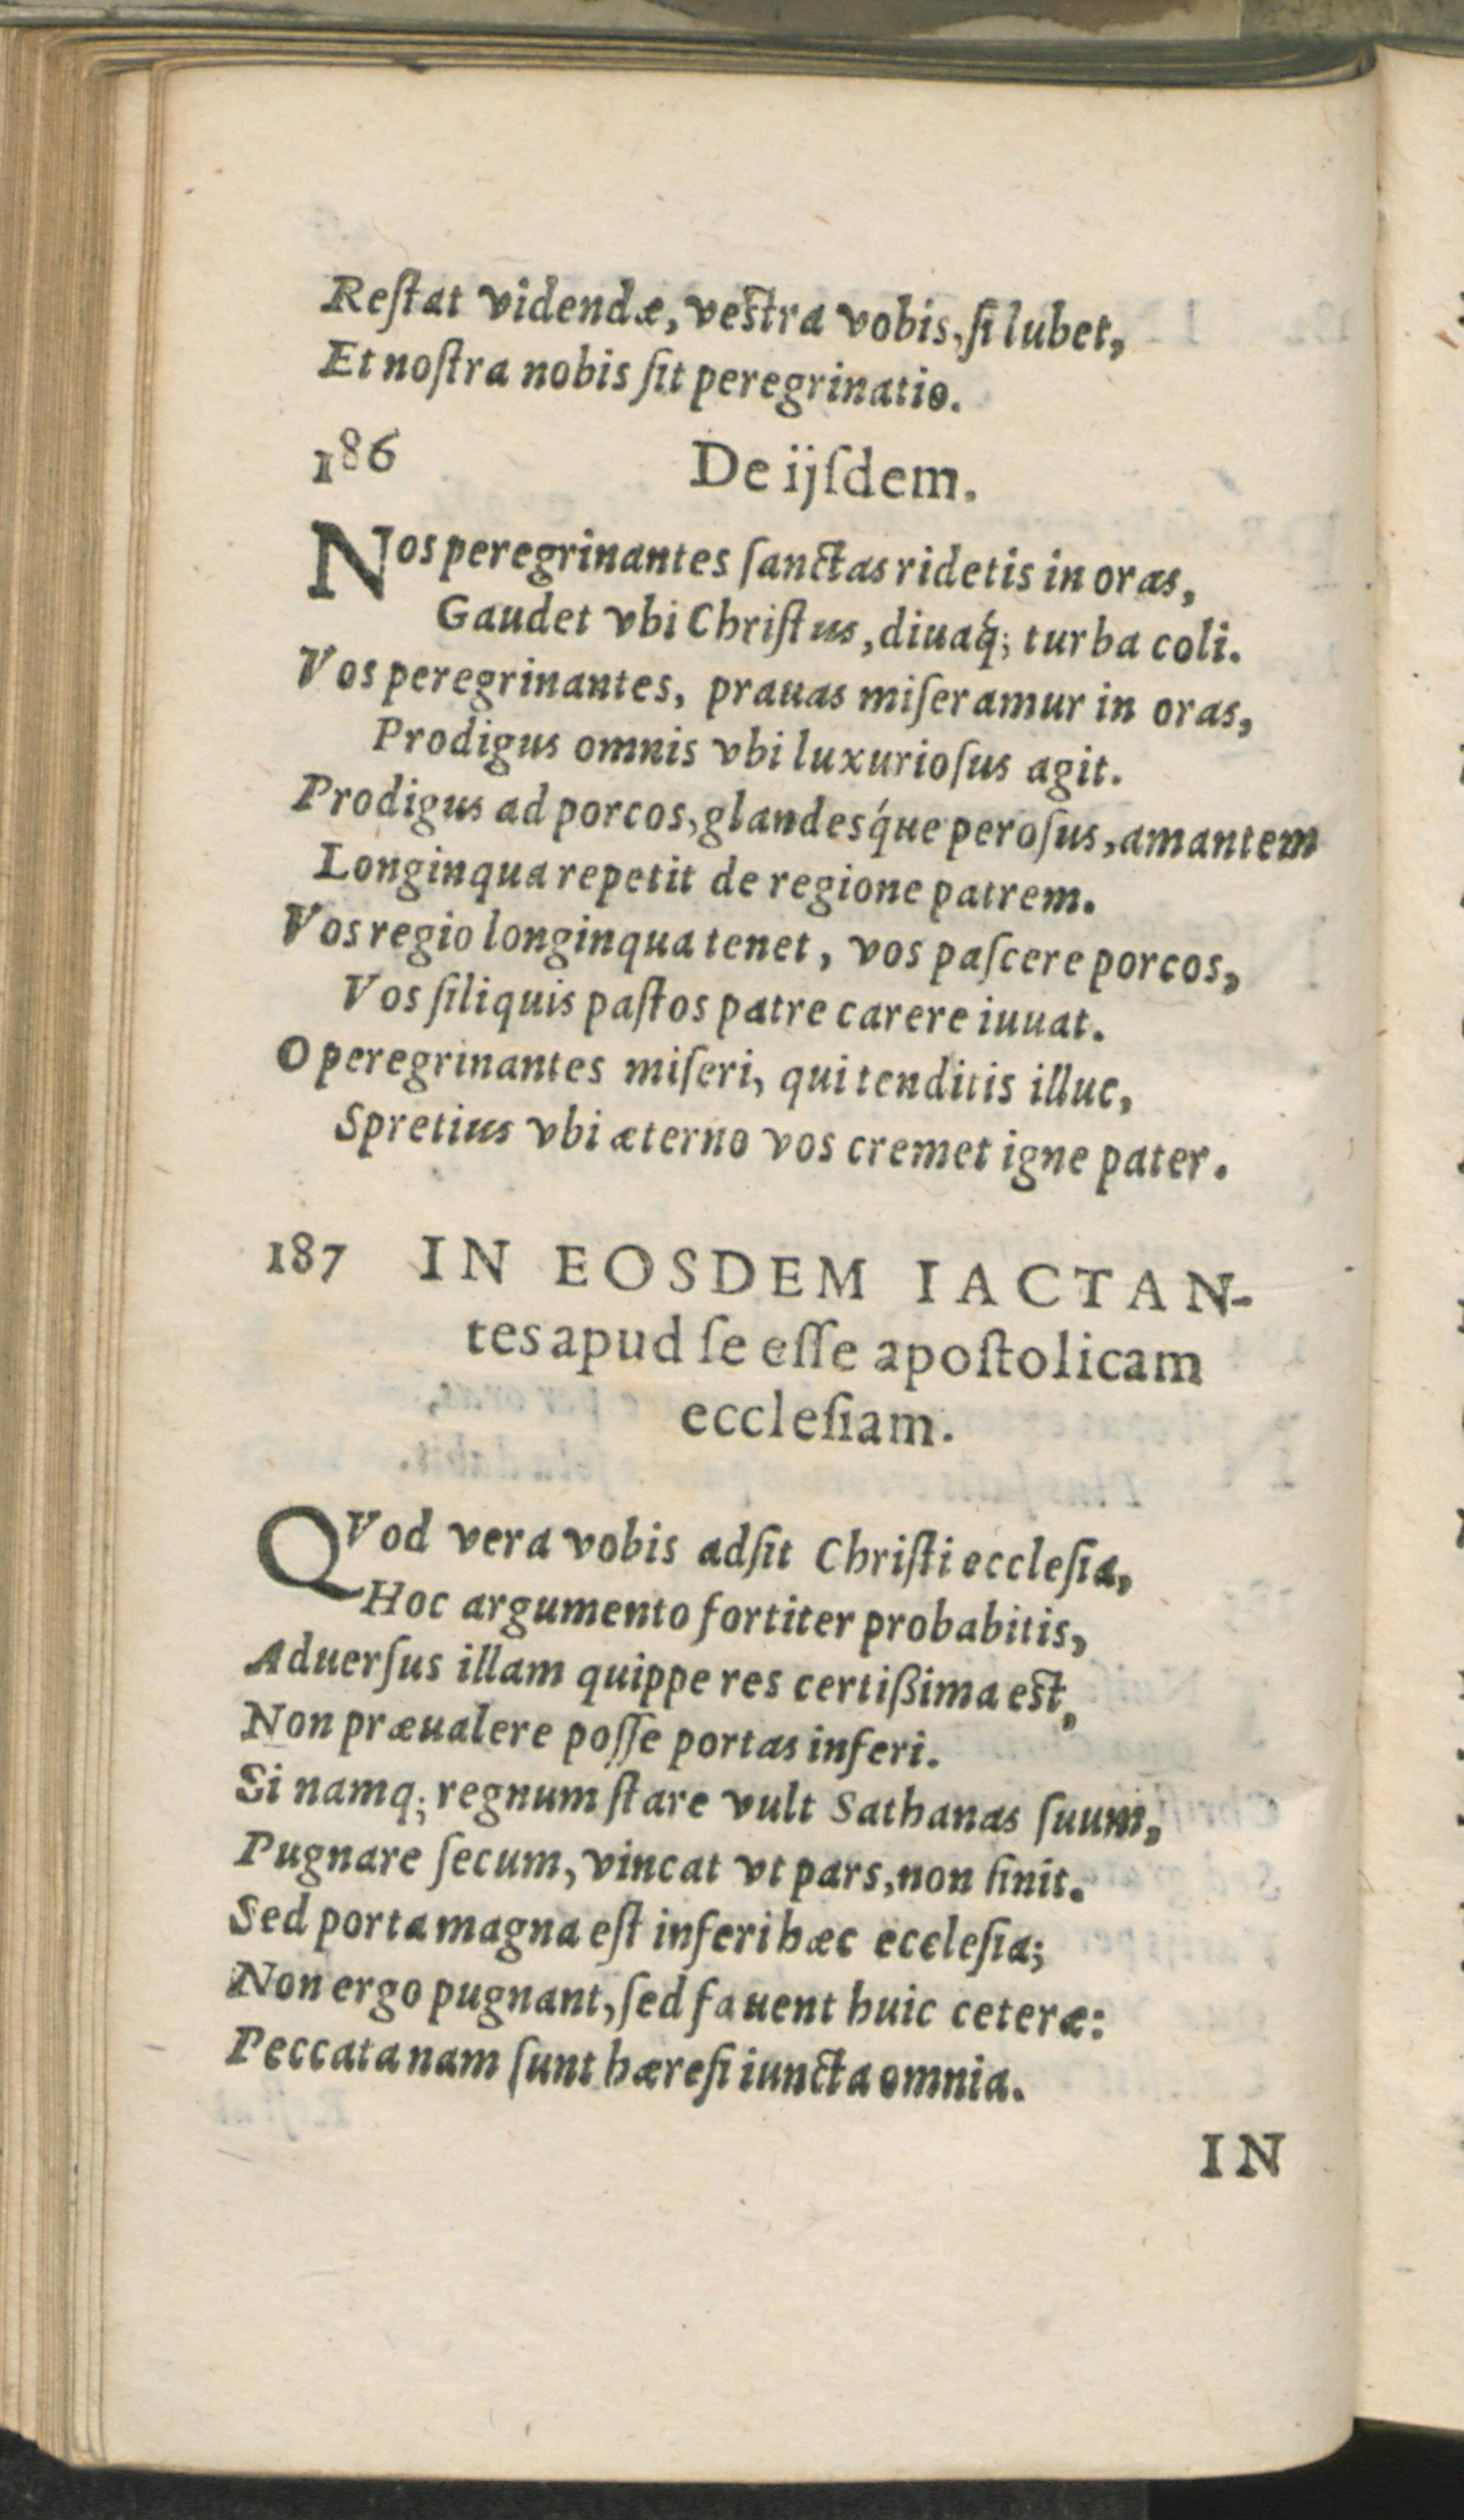 Reſtat videndæ, veſtra vobis, ſi lubet,
Et noſtra nobis ſit peregrinatio.
186 De ijſdem.
Nos peregrinantes ſanctas ridetis in oras,
Gaudet vbi Chriſtus, diuaq́; turba coli.
Vos peregrinantes, prauas miſeramur in oras,
Prodigus omnis vbi luxurioſus agit.
Prodigus ad porcos, glandesq́ue peroſus, amantem
Longinqua repetit de regione patrem.
Vos regio longinqua tenet, vos paſcere porcos,
Vos ſiliquis paſtos patre carere iuuat.
O peregrinantes miſeri, qui tenditis illuc,
Spretius vbi æterno vos cremet igne pater.
187 IN EOSDEM IACTAN-
tes apud ſe eſſe apoſtolicam
eccleſiam.
QVod vera vobis adſit Chriſti eccleſia,
Hoc argumento fortiter probabitis,
Aduerſus illam quippe res certißima eſt,
Non præualere poſſe portas inferi.
Si namq; regnum ſtare vult Sathanas ſuum,
Pugnare ſecum, vincat vt pars, non ſinit.
Sed porta magna eſt inferi hæc eccleſia;
Non ergo pugnant, ſed fauent huic ceteræ:
Peccata nam ſunt hæreſi iuncta omnia.
IN